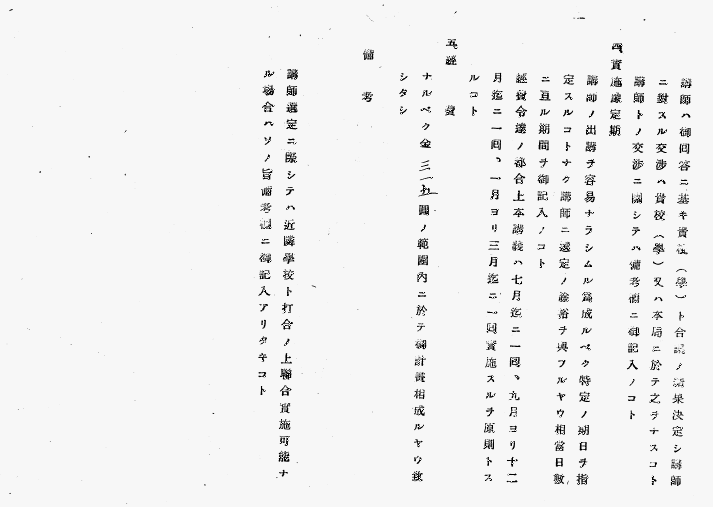 講師ハ御回答ニ基キ貴校(學)ト合記ノ結果決定シ講師
ニ對スル交渉ハ貴校(學)又ハ本局ニ於テ之ヲナスコト
講師トノ交渉ニ關シテハ備考欄ニ御記入ノコト
四、實施豫定期
講師ノ出講ヲ容易ナラシムル爲成ルベク特定ノ期日ヲ指
定スルコトナク講師ニ選定ノ餘裕ヲ與フルヤウ相當日數
ニ亘ル期間ヲ御記入ノコト
經費令達ノ都合上本講義ハ七月迄ニ一囘、九月ヨリ十二
月迄ニ一囘、一月ヨリ三月迄ニ一囘實施スルヲ原則トス
ルコト
五、經費
ナルベク金三一五圓ノ範圍內ニ於テ御計畫相成ルヤウ致
シタシ
備考
講師選定ニ際シテハ近隣學校ト打合ノ上聯合實施可能ナ
ル場合ハソノ旨備考欄ニ御記入アリタキコト